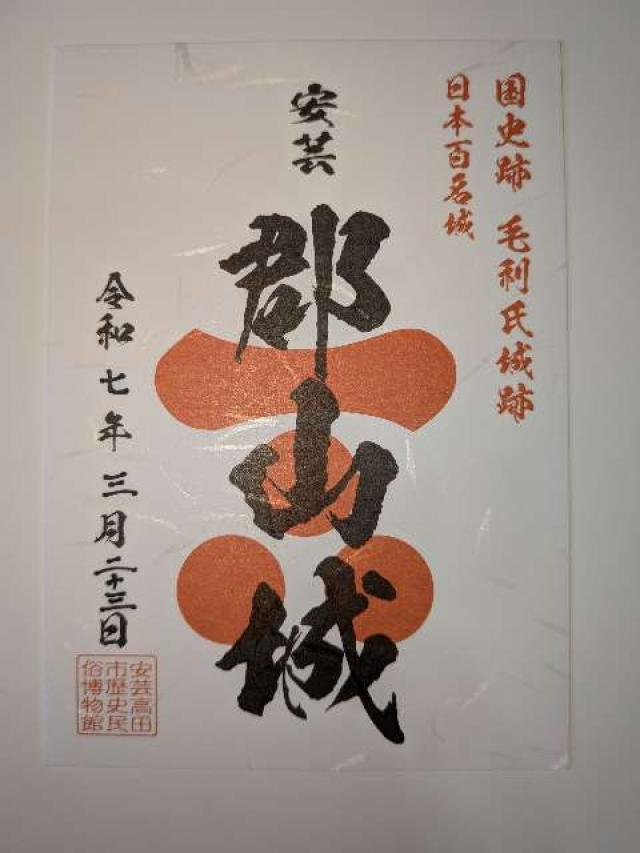 国史跡 毛利氏城跡
日本百名城
安芸
郡山城
令和七年三月二十三日
安芸高田
市歴史民
俗博物館